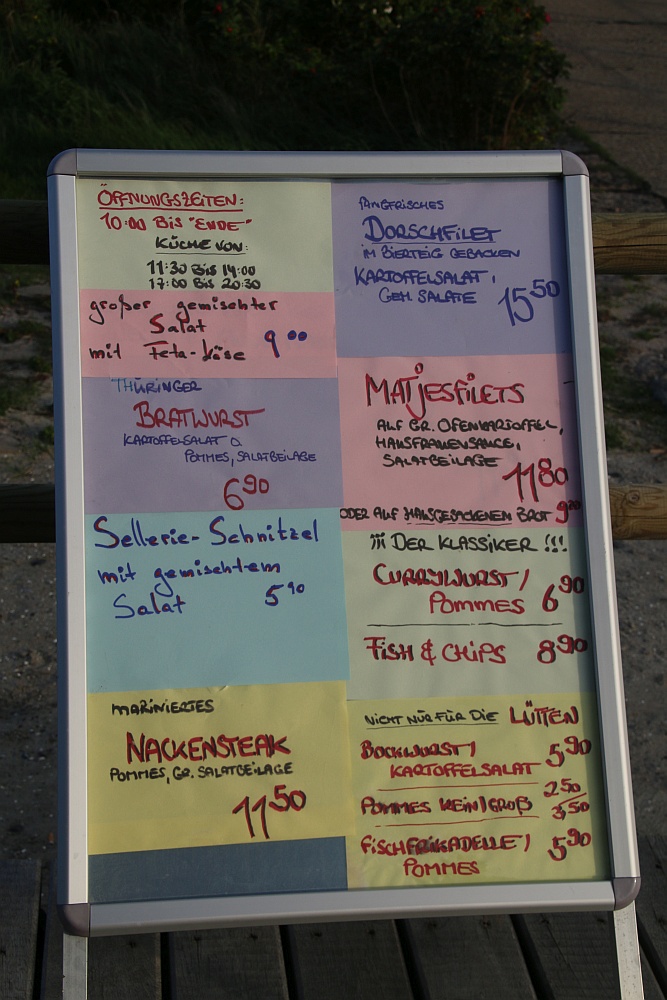 ÖFFNUNGSZEITEN:
10:00 BIS "ENDE"
KÜCHE VON:
11:30 BIS 14:00
17:00 BIS 20:30
großer gemischter
Salat
mit Feta-Käse 9 00
THÜRINGER
BRATWURST
KARTOFFELSALAT O.
POMMES, SALATBEILAGE
6 90
Sellerie-Schnitzel
mit gemischtem
Salat 5 90
MARINIERTES
NACKENSTEAK
POMMES, GR. SALATBEILAGE
11 50
FANGFRISCHES
DORSCHFILET
IM BIERTEIG GEBACKEN
KARTOFFELSALAT,
GEM. SALATE 15 50
MATJESFILETS
AUF GR. OFENKARTOFFEL,
HAUSFRAUENSAUCE,
SALATBEILAGE
11 80
ODER AUF HAUSGEBACKENEM BROT 9 20
¡¡¡ DER KLASSIKER !!!
CURRYWURST/
POMMES 6 90
FISH & CHIPS 8 90
NICHT NUR FÜR DIE LÜTTEN
BOCKWURST/
KARTOFFELSALAT 5 90
POMMES KLEIN/GROß 2 50
3,50
FISCHFRIKADELLE/
POMMES 5 90